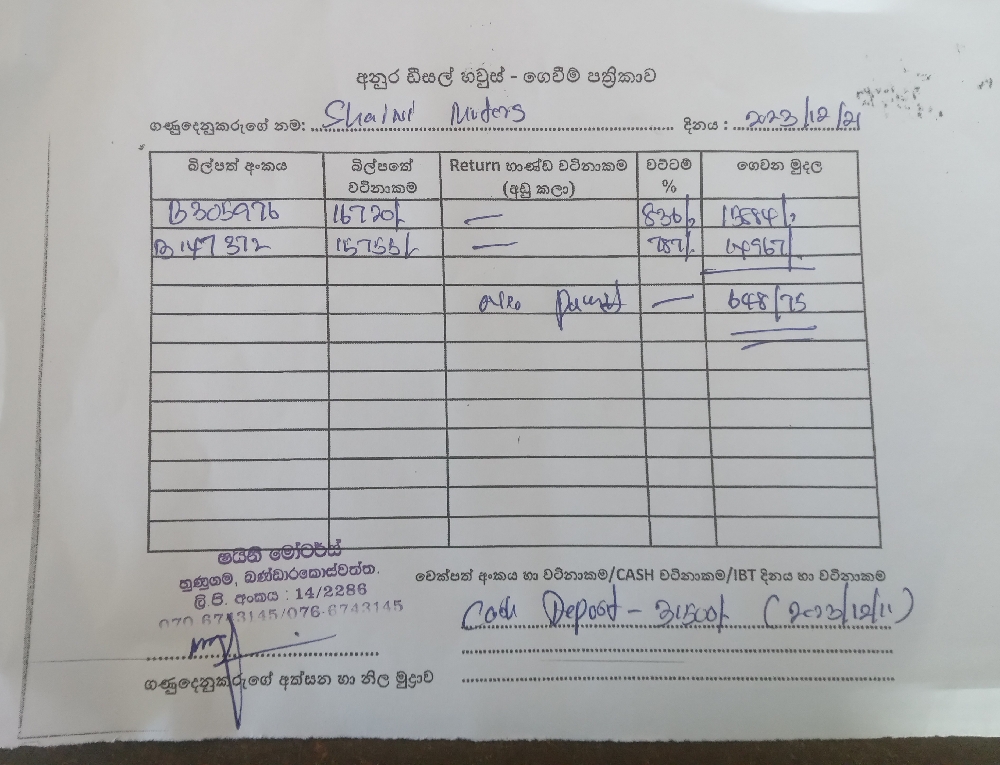 අනුර ඩීසල් හවුස් - ගෙවීම් පත්‍රිකාව
ගණුදෙනුකරුගේ නම: Shaini Motors දිනය : 2023/12/21
බිල්පත් අංකය බිල්පතේ වටිනාකම Return භාණ්ඩ වටිනාකම (අඩු කලා) වට්ටම් % ගෙවන මුදල
B305976 16720/- — 836/- 15884/-
B147372 15755/- — 787/- 14967/-
Over — 648/75
ෂයිනි මෝටර්ස්
හුණුගම, බණ්ඩාරකොස්වත්ත.
ලි.ප. අංකය : 14/2286
070 6743145/076-6743145
චෙක්පත් අංකය හා වටිනාකම/CASH වටිනාකම/IBT දිනය හා වටිනාකම
Cash Deposit - 31500/- (2023/12/11)
ගණුදෙනුකරුගේ අත්සන හා නිල මුද්‍රාව